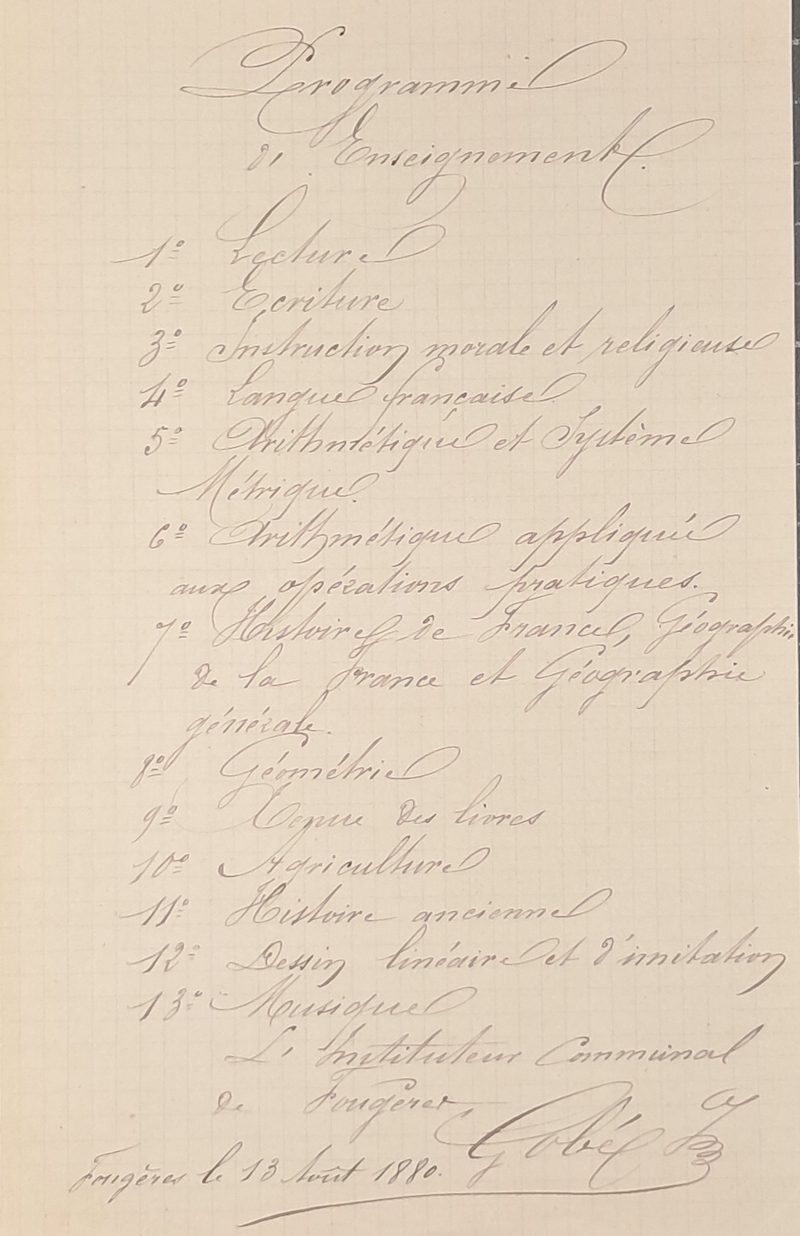 Programme
d'Enseignement.
1º Lecture
2º Ecriture
3º Instruction morale et religieuse
4º Langue française.
5º Arithmétique et Système
Métrique.
6º Arithmétique appliquée
aux opérations pratiques.
7º Histoire de France, Géographie
de la France et Géographie
générale.
8º Géométrie
9º Tenue des livres
10º Agriculture
11º Histoire ancienne
12º Dessin linéaire et d'imitation
13º Musique
L'Instituteur Communal
de Fougères
Gobé
Fougères le 13 Août 1880.